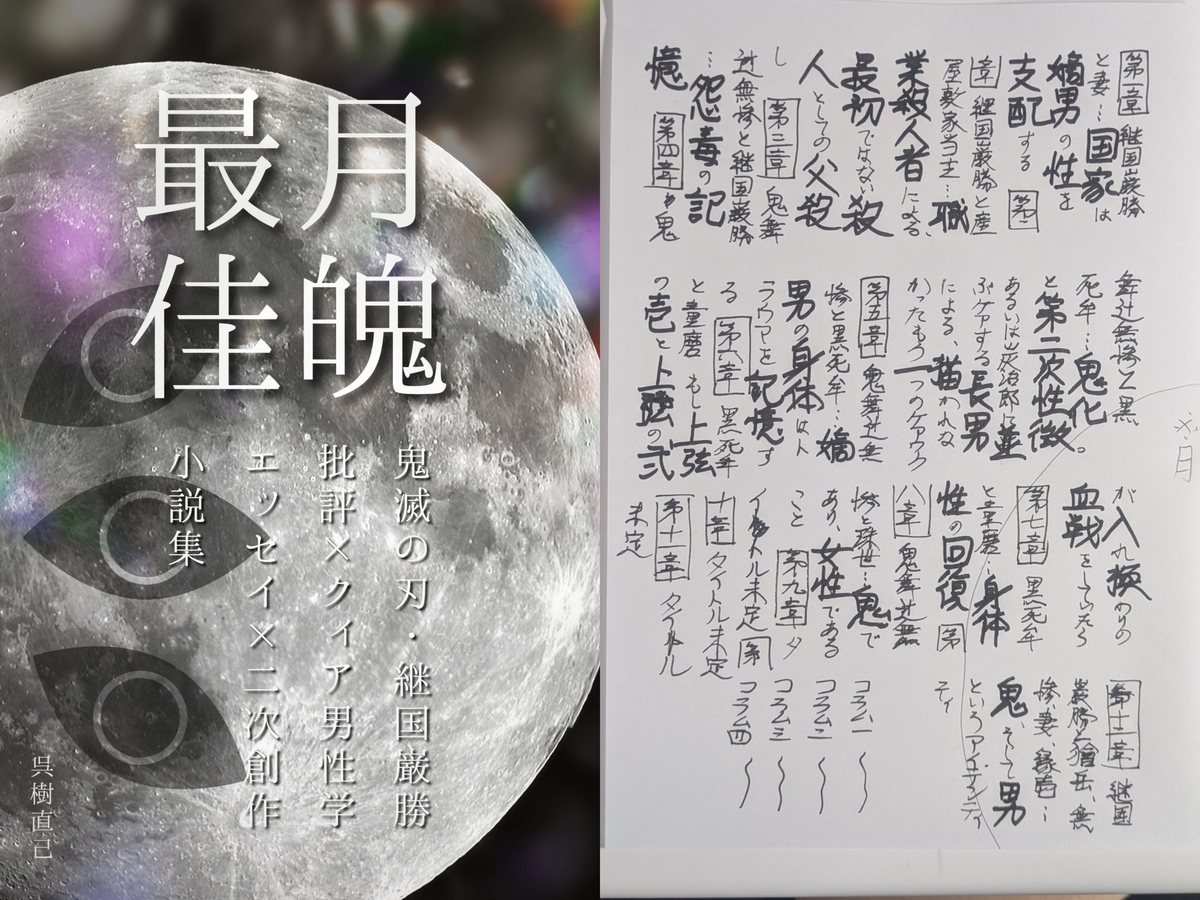 月魄
最佳
鬼滅の刃・継国巌勝
批評×クィア男性学
エッセイ×二次創作
小説集
呉樹直己
第一章 継国巌勝
と妻…国家は
嫡男の性を
支配する 第二
章 継国巌勝と産
屋敷家当主…職
業殺人者による、
最初ではない殺
人としての父殺
し 第三章 鬼舞
辻無惨と継国巌勝
…怨毒の記
憶 第四章 鬼
舞辻無惨と黒
死牟…鬼化。
と第二次性徴
あるいは炭治郎に並
ぶケアする長男
による、描かれな
かったもう一つのケアワーク
第五章 鬼舞辻無
惨と黒死牟…嫡
男の身体はト
ラウマを記憶す
る 第六章 黒死牟
と童磨 もし上弦
の壱と上弦の弐
が入れ替わりの
血戦をしていたら
第七章 黒死牟
と童磨…身体
性の回復 第
八章 鬼舞辻無
惨と珠世…鬼で
あり、女性である
こと 第九章 タ
イトル未定 第
十章 タイトル未定
第十一章 タイトル
未定
第十二章 継国
巌勝と獪岳、無
惨、妻、縁壱…
鬼そして男
というアイデンティ
ティ
コラム一 〜
コラム二 〜
コラム三 〜
コラム四 〜